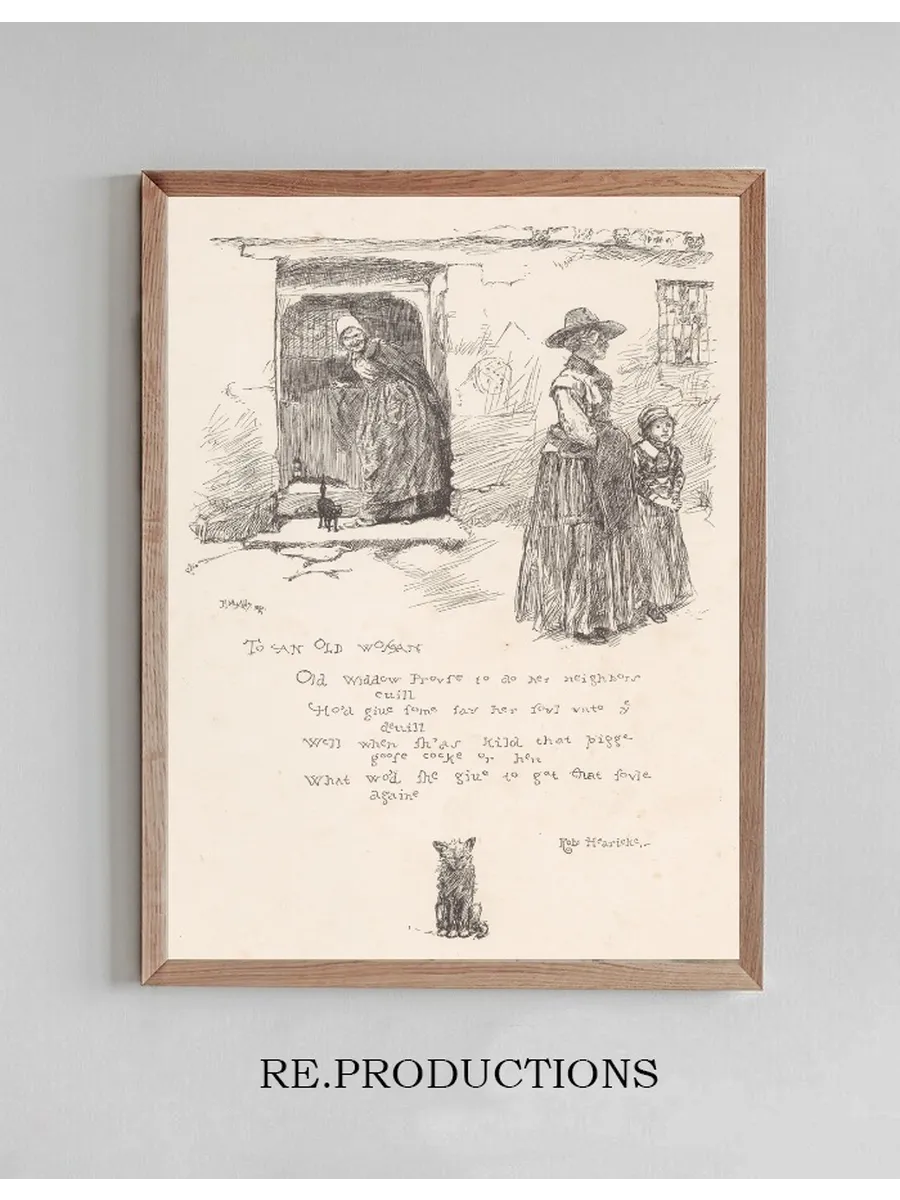 To AN OLD WOMAN
Old Widdow Provse to do her neighbors
euill
Wo'd giue some say her sovl vnto yᵉ
deuill
Well when sh'as kild that pigge
goose cocke or hen
What wo'd she giue to get that sovle
againe
Rob: Hearicke.
RE.PRODUCTIONS